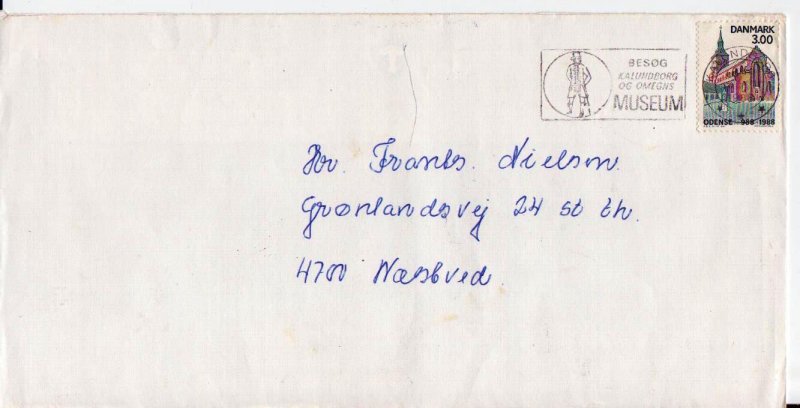 DANMARK
3.00
BESØG
KALUNDBORG
OG OMEGNS
MUSEUM
ODENSE 988-1988
Hr. Frants. Nielsen.
Grønlandsvej 24 st th.
4700 Næstved